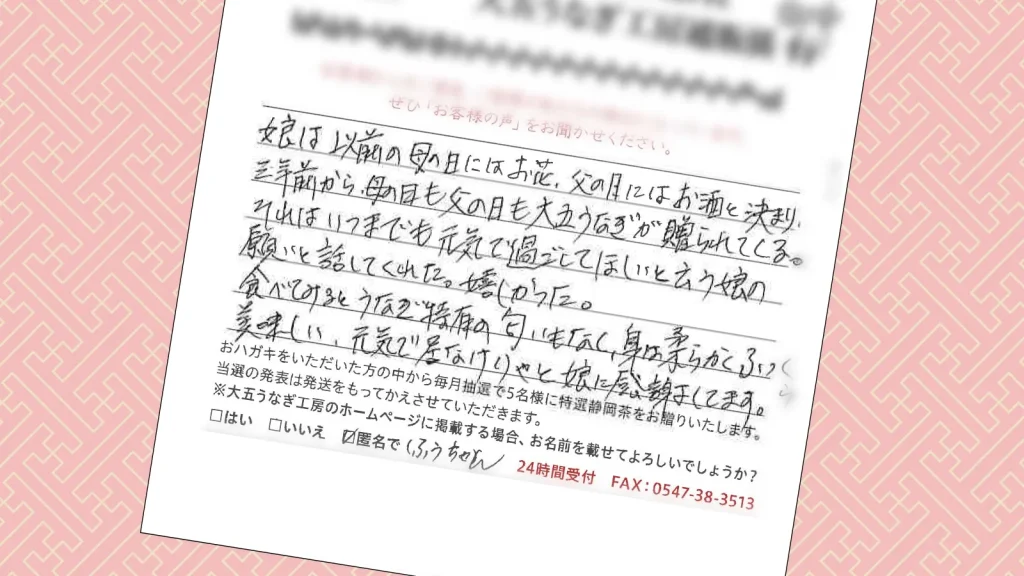 大五うなぎ工房通販係 行
ぜひ「お客様の声」をお聞かせください。
娘は以前の母の日にはお花、父の日にはお酒と決まり、
三年前から、母の日も父の日も大五うなぎが贈られてくる。
それはいつまでも元気で過ごしてほしいと云う娘の
願いと話してくれた。嬉しかった。
食べてみるとうなぎ特有の匂いもなく、身は柔らかくふっくら
美味しい、元気で居なけりゃと娘に感謝してます。
おハガキをいただいた方の中から毎月抽選で5名様に特選静岡茶をお贈りいたします。
当選の発表は発送をもってかえさせていただきます。
※大五うなぎ工房のホームページに掲載する場合、お名前を載せてよろしいでしょうか?
□はい □いいえ ☑匿名で しふうちゃん
24時間受付 FAX:0547-38-3513